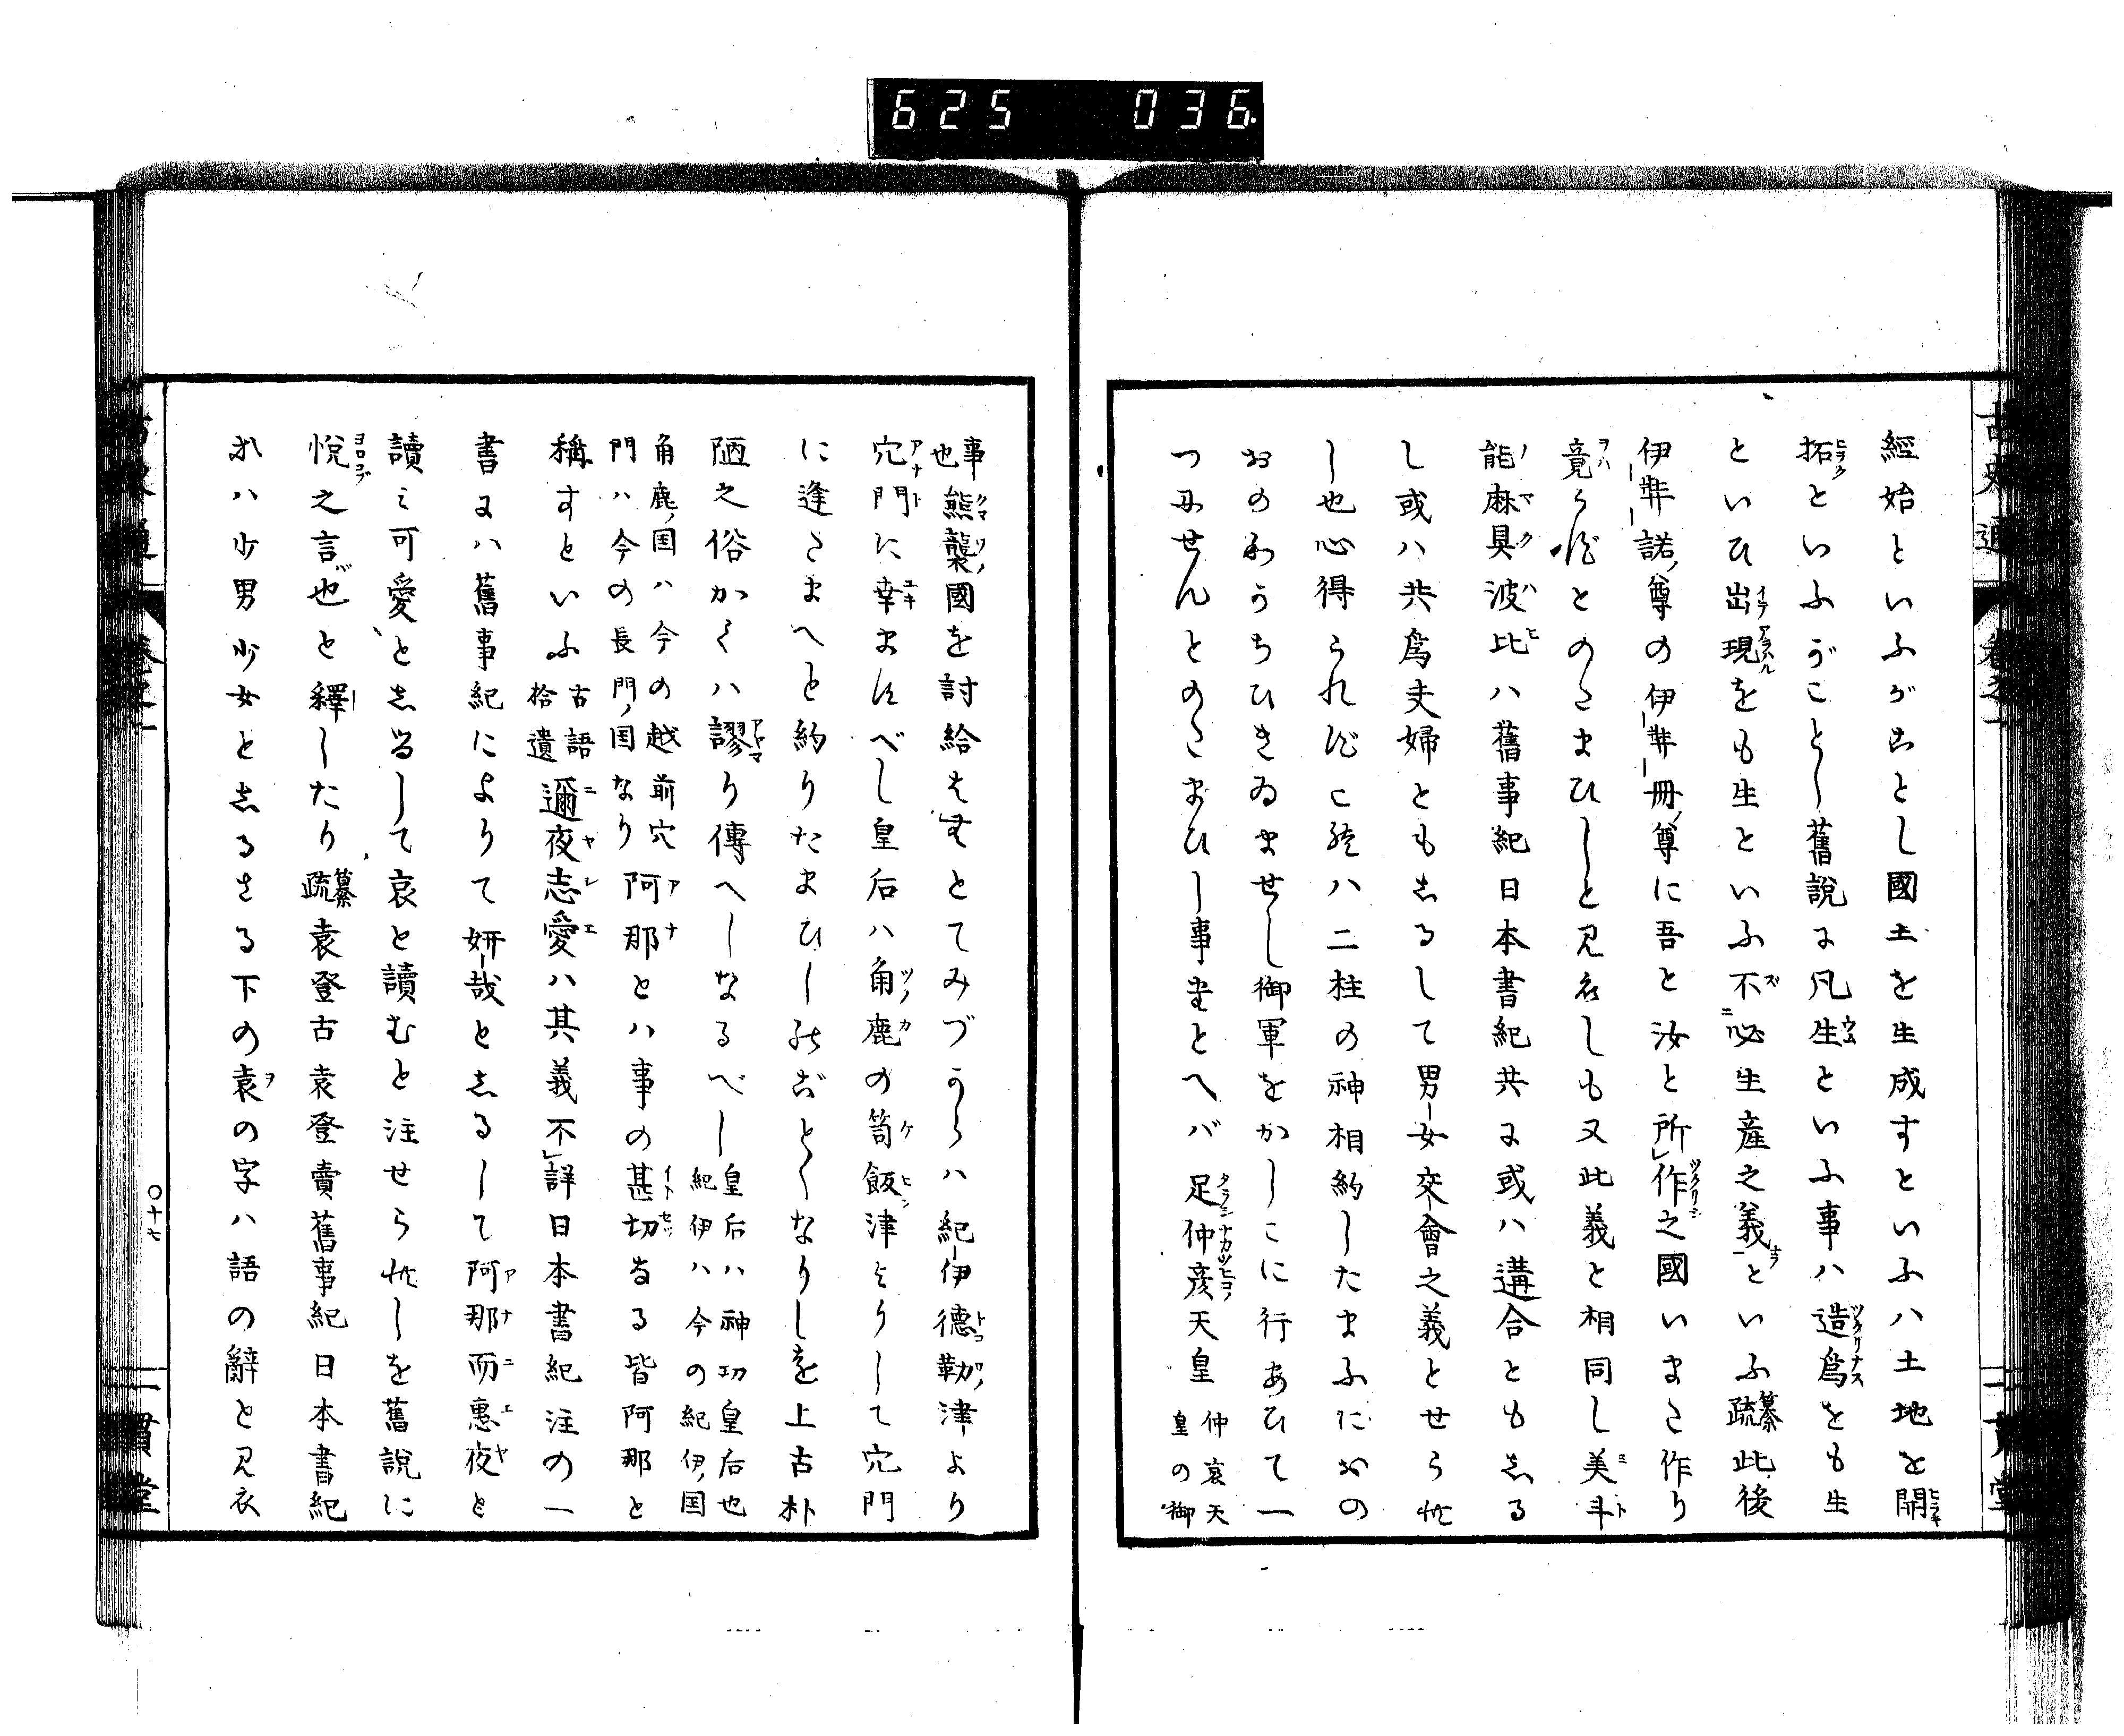 625 036.
經始といふがごとし國土を生成すといふハ土地を開
拓といふがごとし舊說に凡生といふ事ハ造爲をも生
といひ出現をも生といふ不必生産之義といふ纂疏此後
伊弉諾尊の伊弉冊尊に吾と汝と所作之國いまた作り
竟らずとのたまひしと見えしも又此義と相同し美斗
能麻具波比ハ舊事紀日本書紀共に或ハ遘合ともしる
し或ハ共爲夫婦ともしるして男女交會之義とせられ
し也心得られず是ハ二柱の神相約したまふにおの
おのみうちひきゐませし御軍をかしこに行あひて一
つにせんとのたまひし事たとへバ足仲彦天皇仲哀天皇の御
事也熊襲國を討給はむとてみづからハ紀伊德勒津より
穴門に幸ますべし皇后ハ角鹿の笥飯津よりして穴門
に逢たまへと約りたまひしがごとくなりしを上古朴
陋之俗かくハ謬り傳へしなるべし皇后ハ神功皇后也紀伊ハ今の紀伊国
角鹿国ハ今の越前穴門ハ今の長門国なり阿那とハ事の甚切なる皆阿那と
稱すといふ古語拾遺邇夜志愛ハ其義不詳日本書紀注の一
書にハ舊事紀によりて妍哉としるして阿那而惠夜と
讀ミ可愛としるして哀と讀むと注せられしを舊說に
悅之言也と釋したり纂疏袁登古袁登賣舊事紀日本書紀
並ハ少男少女としるさる下の袁の字ハ語の辭と見え
〇十七